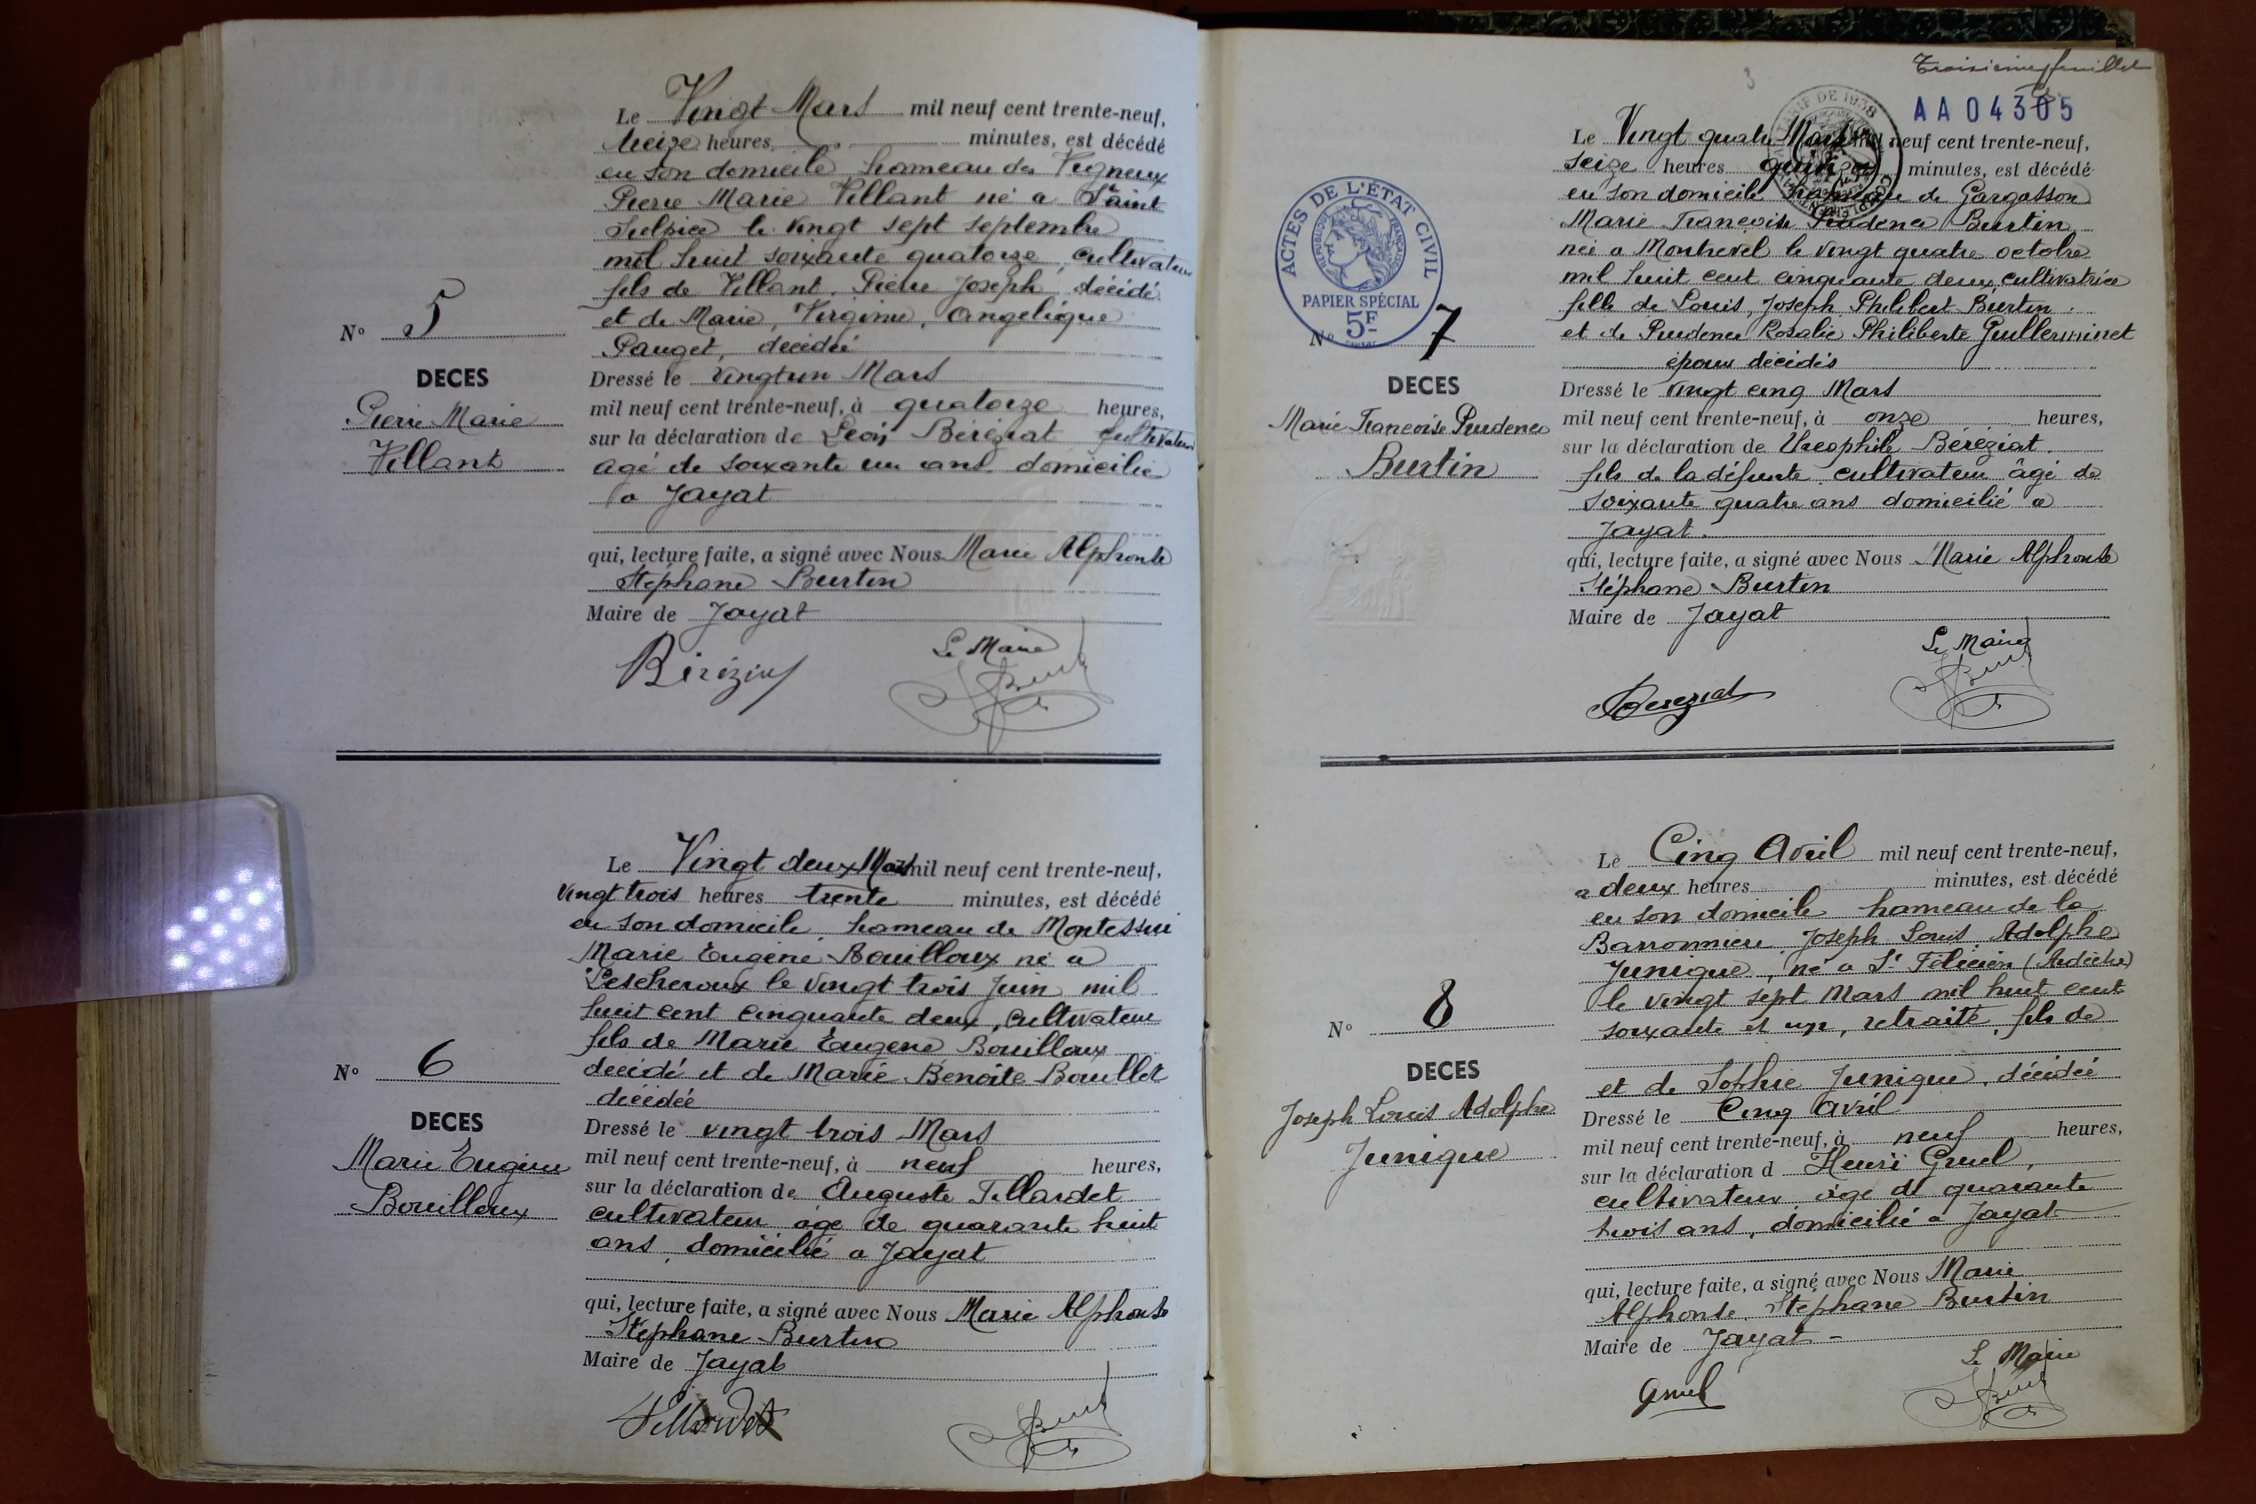 Le Vingt Mars mil neuf cent trente-neuf,
treize heures minutes, est décédé
en son domicile hameau des Vigneux
Pierre Marie Villant né a Saint
Sulpice le vingt sept septembre
mil huit soixante quatorze, cultivateur
fils de Villant, Pierre Joseph, décédé
et de Marie, Virginie, Angelique
Pauget, décédée
N° 5
DECES
Pierre Marie
Villant
Dressé le vingt un Mars
mil neuf cent trente-neuf, à quatorze heures,
sur la déclaration de Léon Béréziat cultivateur
agé de soixante un ans domicilié
a Jayat
qui, lecture faite, a signé avec Nous Marie Alphonse
Stéphane Burtin
Maire de Jayat
Le Maire
Béréziat
Le Vingt deux Mars mil neuf cent trente-neuf,
vingt trois heures trente minutes, est décédé
en son domicile, hameau de Montessui
Marie Eugène Bouilloux né a
Lescheroux le vingt trois Juin mil
huit cent cinquante deux, cultivateur
fils de Marie Eugène Bouilloux
décédé et de Marie Benoîte Bouillet
décédée
N° 6
DECES
Marie Eugène
Bouilloux
Dressé le vingt trois Mars
mil neuf cent trente-neuf, à neuf heures,
sur la déclaration de Auguste Tillardet
cultivateur âgé de quarante huit
ans, domicilié a Jayat
qui, lecture faite, a signé avec Nous Marie Alphonse
Stéphane Burtin
Maire de Jayat
Tillardet
Troisième feuillet
3
AA04305
Le Vingt quatre Mars mil neuf cent trente-neuf,
seize heures quinze minutes, est décédé
en son domicile hameau de Gargasson
Marie Françoise Prudence Burtin
née a Montrevel le vingt quatre octobre
mil huit cent cinquante deux, cultivatrice
fille de Louis, Joseph Philibert Burtin
et de Prudence Rosalie Philiberte Guillerminet
époux décédés
ACTES DE L'ÉTAT CIVIL
RÉPUBLIQUE FRANÇAISE
PAPIER SPÉCIAL
5F
N° 7
DECES
Marie Francoise Prudence
Burtin
Dressé le vingt cinq Mars
mil neuf cent trente-neuf, à onze heures,
sur la déclaration de Théophile Béréziat
fils de la défunte cultivateur âgé de
soixante quatre ans domicilié a
Jayat.
qui, lecture faite, a signé avec Nous Marie Alphonse
Stéphane Burtin
Maire de Jayat
Le Maire
Bereziat
Le Cinq Avril mil neuf cent trente-neuf,
a deux heures minutes, est décédé
en son domicile hameau de la
Barronniere Joseph Louis Adolphe
Junique, né a St Félicien (Ardèche)
le vingt sept Mars mil huit cent
soixante et un, retraité, fils de
et de Sophie Junique, décédée
N° 8
DECES
Joseph Louis Adolphe
Junique
Dressé le Cinq avril
mil neuf cent trente-neuf, à neuf heures,
sur la déclaration d Henri Gruel,
cultivateur âgé de quarante
trois ans, domicilié a Jayat
qui, lecture faite, a signé avec Nous Marie
Alphonse, Stéphane Burtin
Maire de Jayat
Le Maire
Gruel